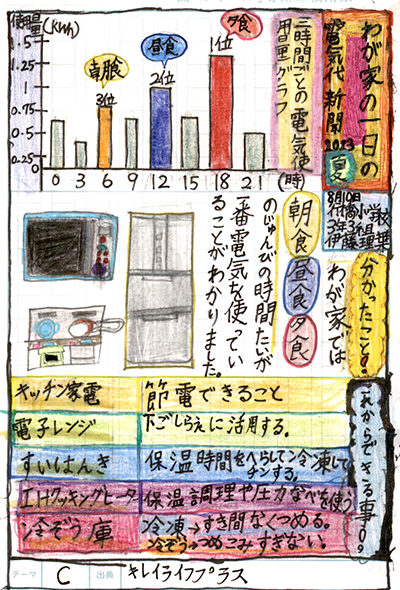 わが家の一日の
電気代新聞
2023
三時間ごとの電気使
用量グラフ
使用量(KWh)
1.5
1.25
1
0.75
0.5
0.25
朝食
3位
昼食
2位
夕食
1位
0 3 6 9 12 15 18 21 (時)
8月10日
分かったこと!
わが家では、
朝食 昼食 夕食
のじゅんびの時間たいが
一番電気を使ってい
ることがわかりました。
これからできる事
キッチン家電 節電できること
電子レンジ 下ごしらえに活用する。
すいはんき 保温時間をへらして冷凍して
チンする。
IHクッキングヒーター 保温調理や圧力なべを使う
冷ぞう庫 冷凍→すき間なくつめる。
冷ぞう→つめこみすぎない。
テーマ C 出典 キレイライフプラス